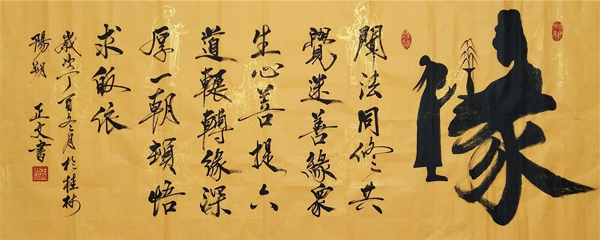 緣
聞法同修共
覺迷善緣眾
生心菩提六
道輾轉緣深
厚一朝頓悟
求皈依
歲次丁酉冬月於桂林
陽朔 正文書